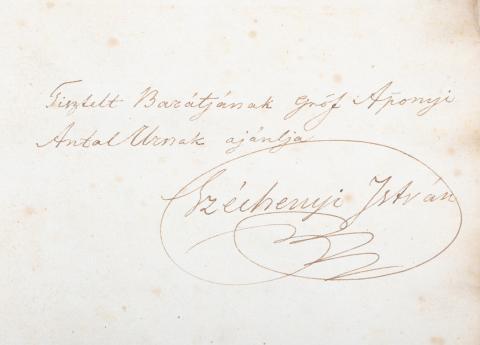 Tisztelt Barátjának Gróf Aponyi
Antal Urnak ajánlja
Széchenyi István